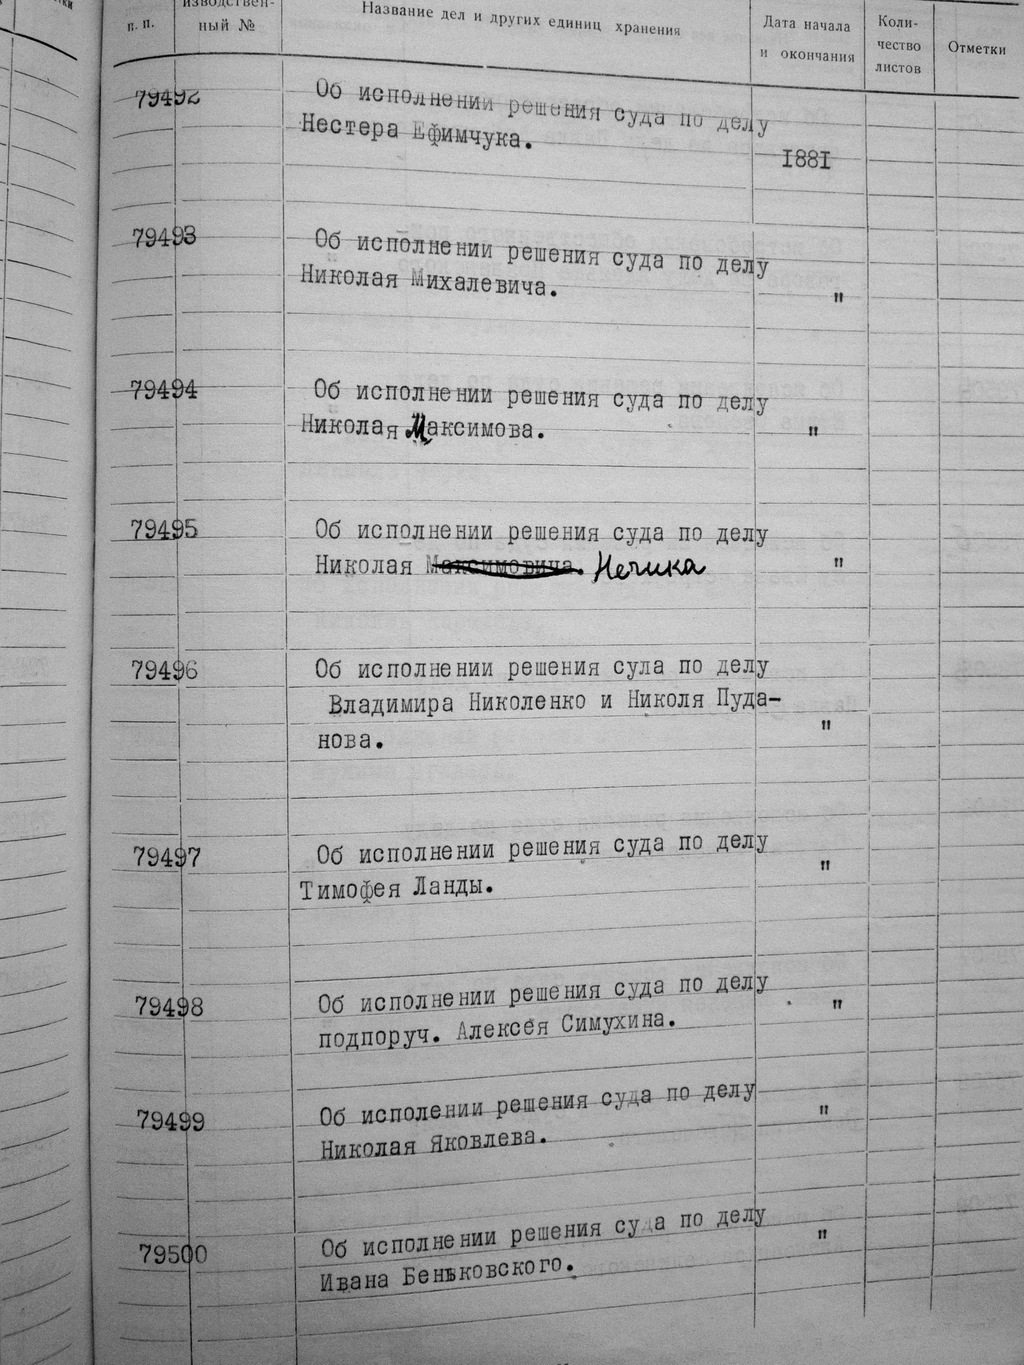 п. п.
изводствен-
ный №
Название дел и других единиц хранения
Дата начала
и окончания
Коли-
чество
листов
Отметки
79492
Об исполнении решения суда по делу
Нестера Ефимчука.
1881
79493
Об исполнении решения суда по делу
Николая Михалевича.
"
79494
Об исполнении решения суда по делу
Николая Максимова.
"
79495
Об исполнении решения суда по делу
Николая Максимовича. Нечика
"
79496
Об исполнении решения сула по делу
Владимира Николенко и Николя Пуда-
нова.
"
79497
Об исполнении решения суда по делу
Тимофея Ланды.
"
79498
Об исполнении решения суда по делу
подпоруч. Алексея Симухина.
"
79499
Об исполении решения суда по делу
Николая Яковлева.
"
79500
Об исполнении решения суда по делу
Ивана Беньковского.
"